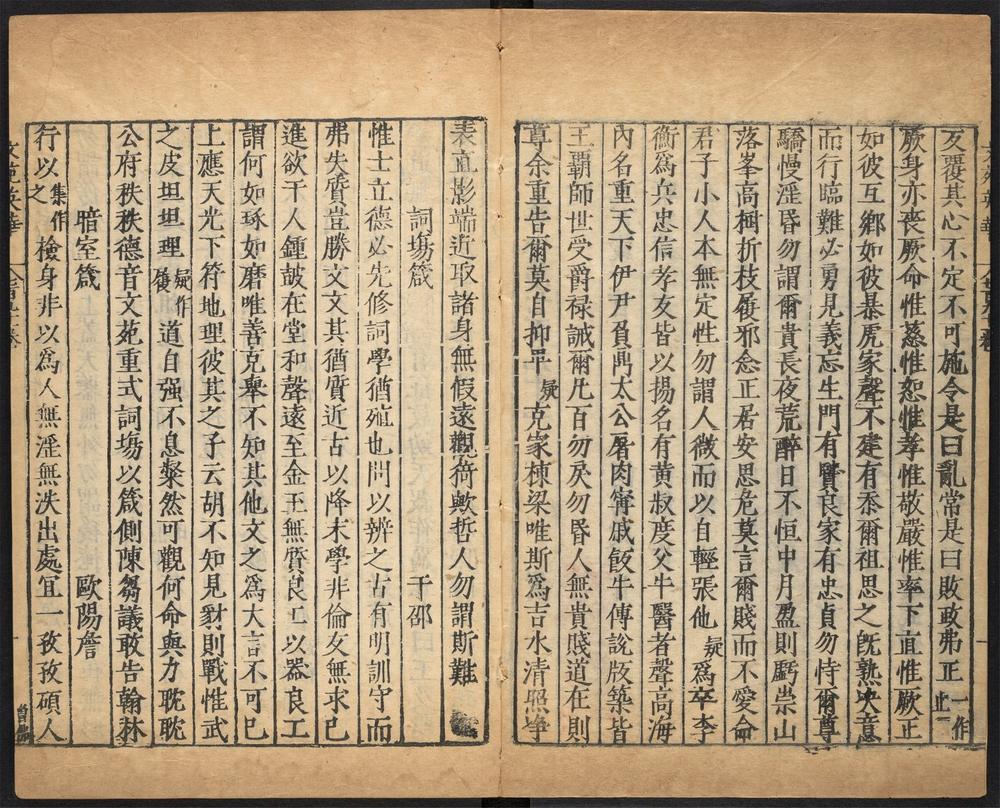 友覆其心不定不可施令是曰亂常是曰敗政弗正一作止
厥身亦喪厥命惟慈惟恕惟孝惟敬嚴惟率下直惟厥正
如彼互鄉如彼暴虎家聲不建有忝爾祖思之既熟決意
而行臨難必勇見義忘生門有賢良家有忠貞勿恃爾尊
驕慢淫昏勿謂爾貴長夜荒醉日不恒中月盈則虧崇山
落峯高柯折枝屐邪念正居安思危莫言爾賤而不愛命
君子小人本無定性勿謂人微而以自輕張他疑為卒李
衡為兵忠信孝友皆以揚名有黃叔度父牛醫者聲高海
內名重天下伊尹負鼎太公屠肉甯戚飯牛傅說版築皆
王霸師世受爵祿誡爾凡百勿戾勿昏人無貴賤道在則
尊余重告爾莫自抑平疑克家棟梁唯斯為吉水清照淨
表直影端近取諸身無假遠觀猗歟哲人勿謂斯難
詞塲箴 于邵
惟士立德必先修詞學猶殖也問以辨之古有明訓守而
弗失質豈勝文文其猶質近古以降末學非倫友無求已
進欲干人鍾鼓在堂和聲遠至金玉無賢良工以器良工
謂何如琢如磨唯善克舉不知其他文之為大言不可已
上應天光下符地理彼其之子云胡不知見豺則戰惟武
之皮坦坦理疑作履道自强不息粲然可觀何命與力耽耽
公府秩秩德音文苑重式詞塲以箴側陳芻議敢告翰林
暗室箴 歐陽詹
行以之集作檢身非以為人無淫無泆出處冝一孜孜碩人
文苑英華